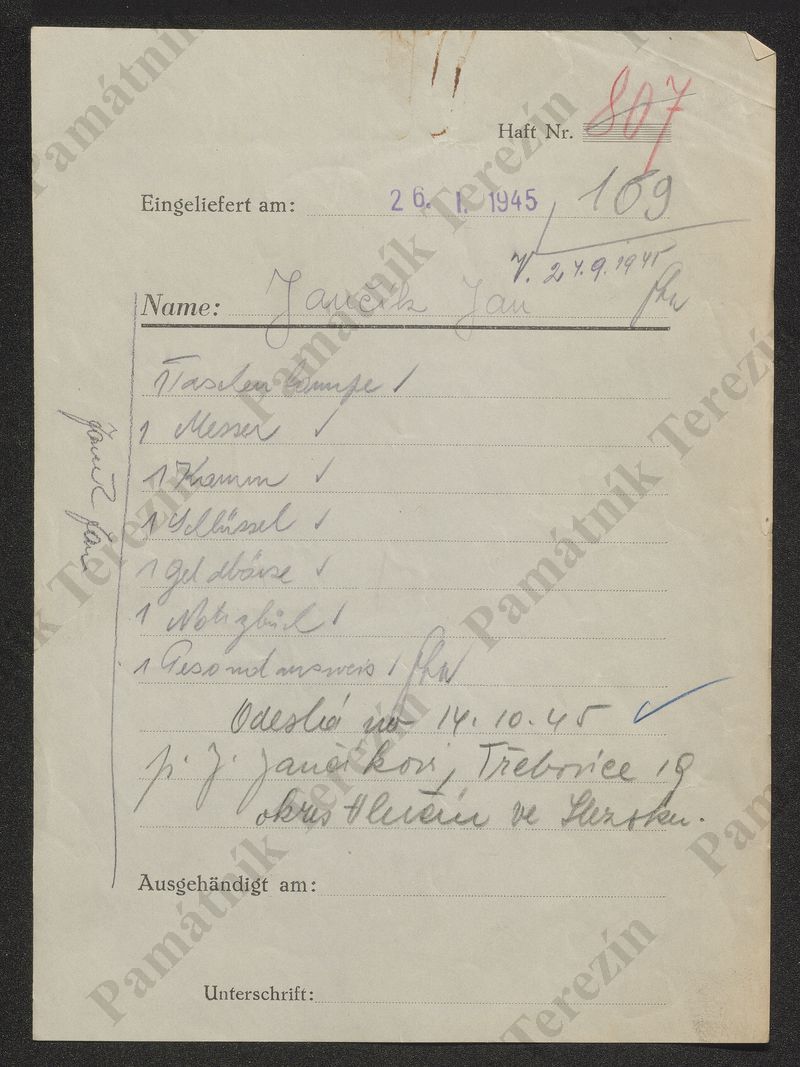 Haft Nr. 807
Eingeliefert am: 26. I. 1945 169
V. 24.9.1945
Name: Jančík Jan
1 Taschenlampe ✓
1 Messer ✓
1 Kamm ✓
1 Schlüssel ✓
1 Geldbörse ✓
1 Notizbuch ✓
1
Jančík Jan
Odeslá no 14.10.45 ✓
p. J. Jančíkovi, Třebovice 19
okres Hlučín ve Slezsku.
Ausgehändigt am:
Unterschrift:
Památník Terezín